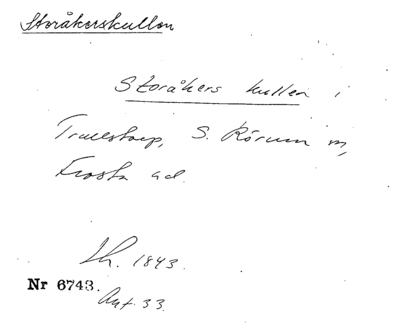 Storåkerskullen
Storåkers kullen i
Truelstorp, S. Rörum sn,
Frosta hd.
Lh. 1843.
Nr 6743.
Ant. 33.